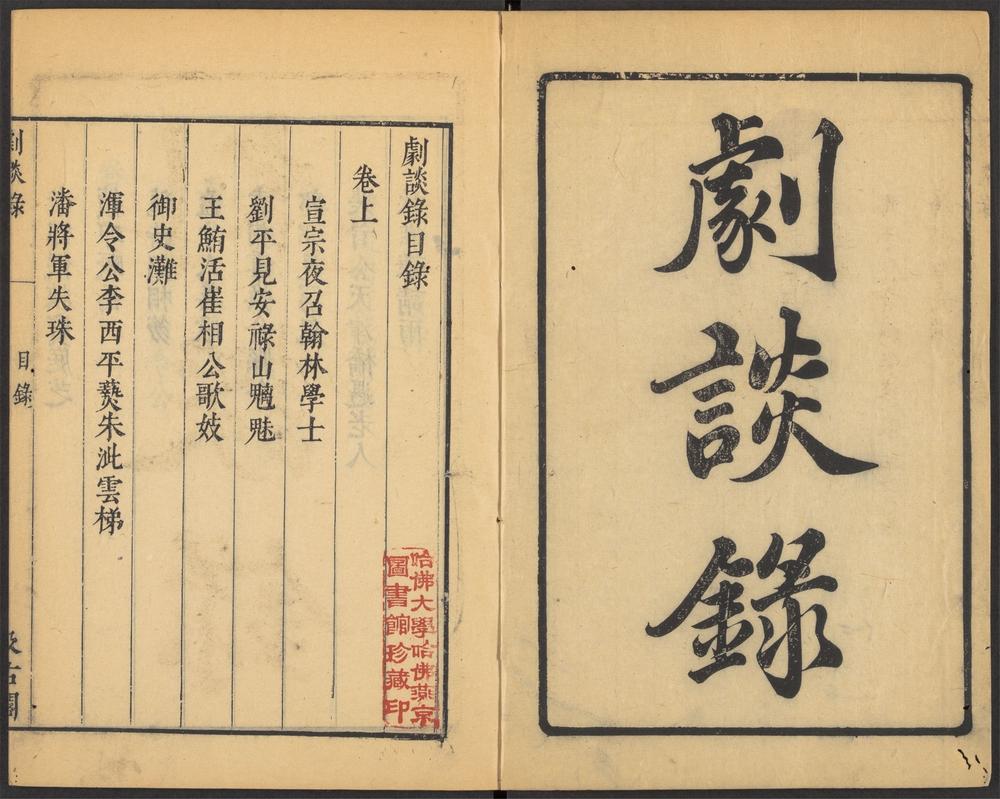 劇談錄
劇談錄目錄
卷上
宣宗夜召翰林學士
劉平見安祿山魑魅
王鮪活崔相公歌妓
御史灘
渾令公李西平爇朱泚雲梯
潘將軍失珠
劇談錄
目錄
汲古閣
哈佛大學哈佛燕京
圖書館珍藏印